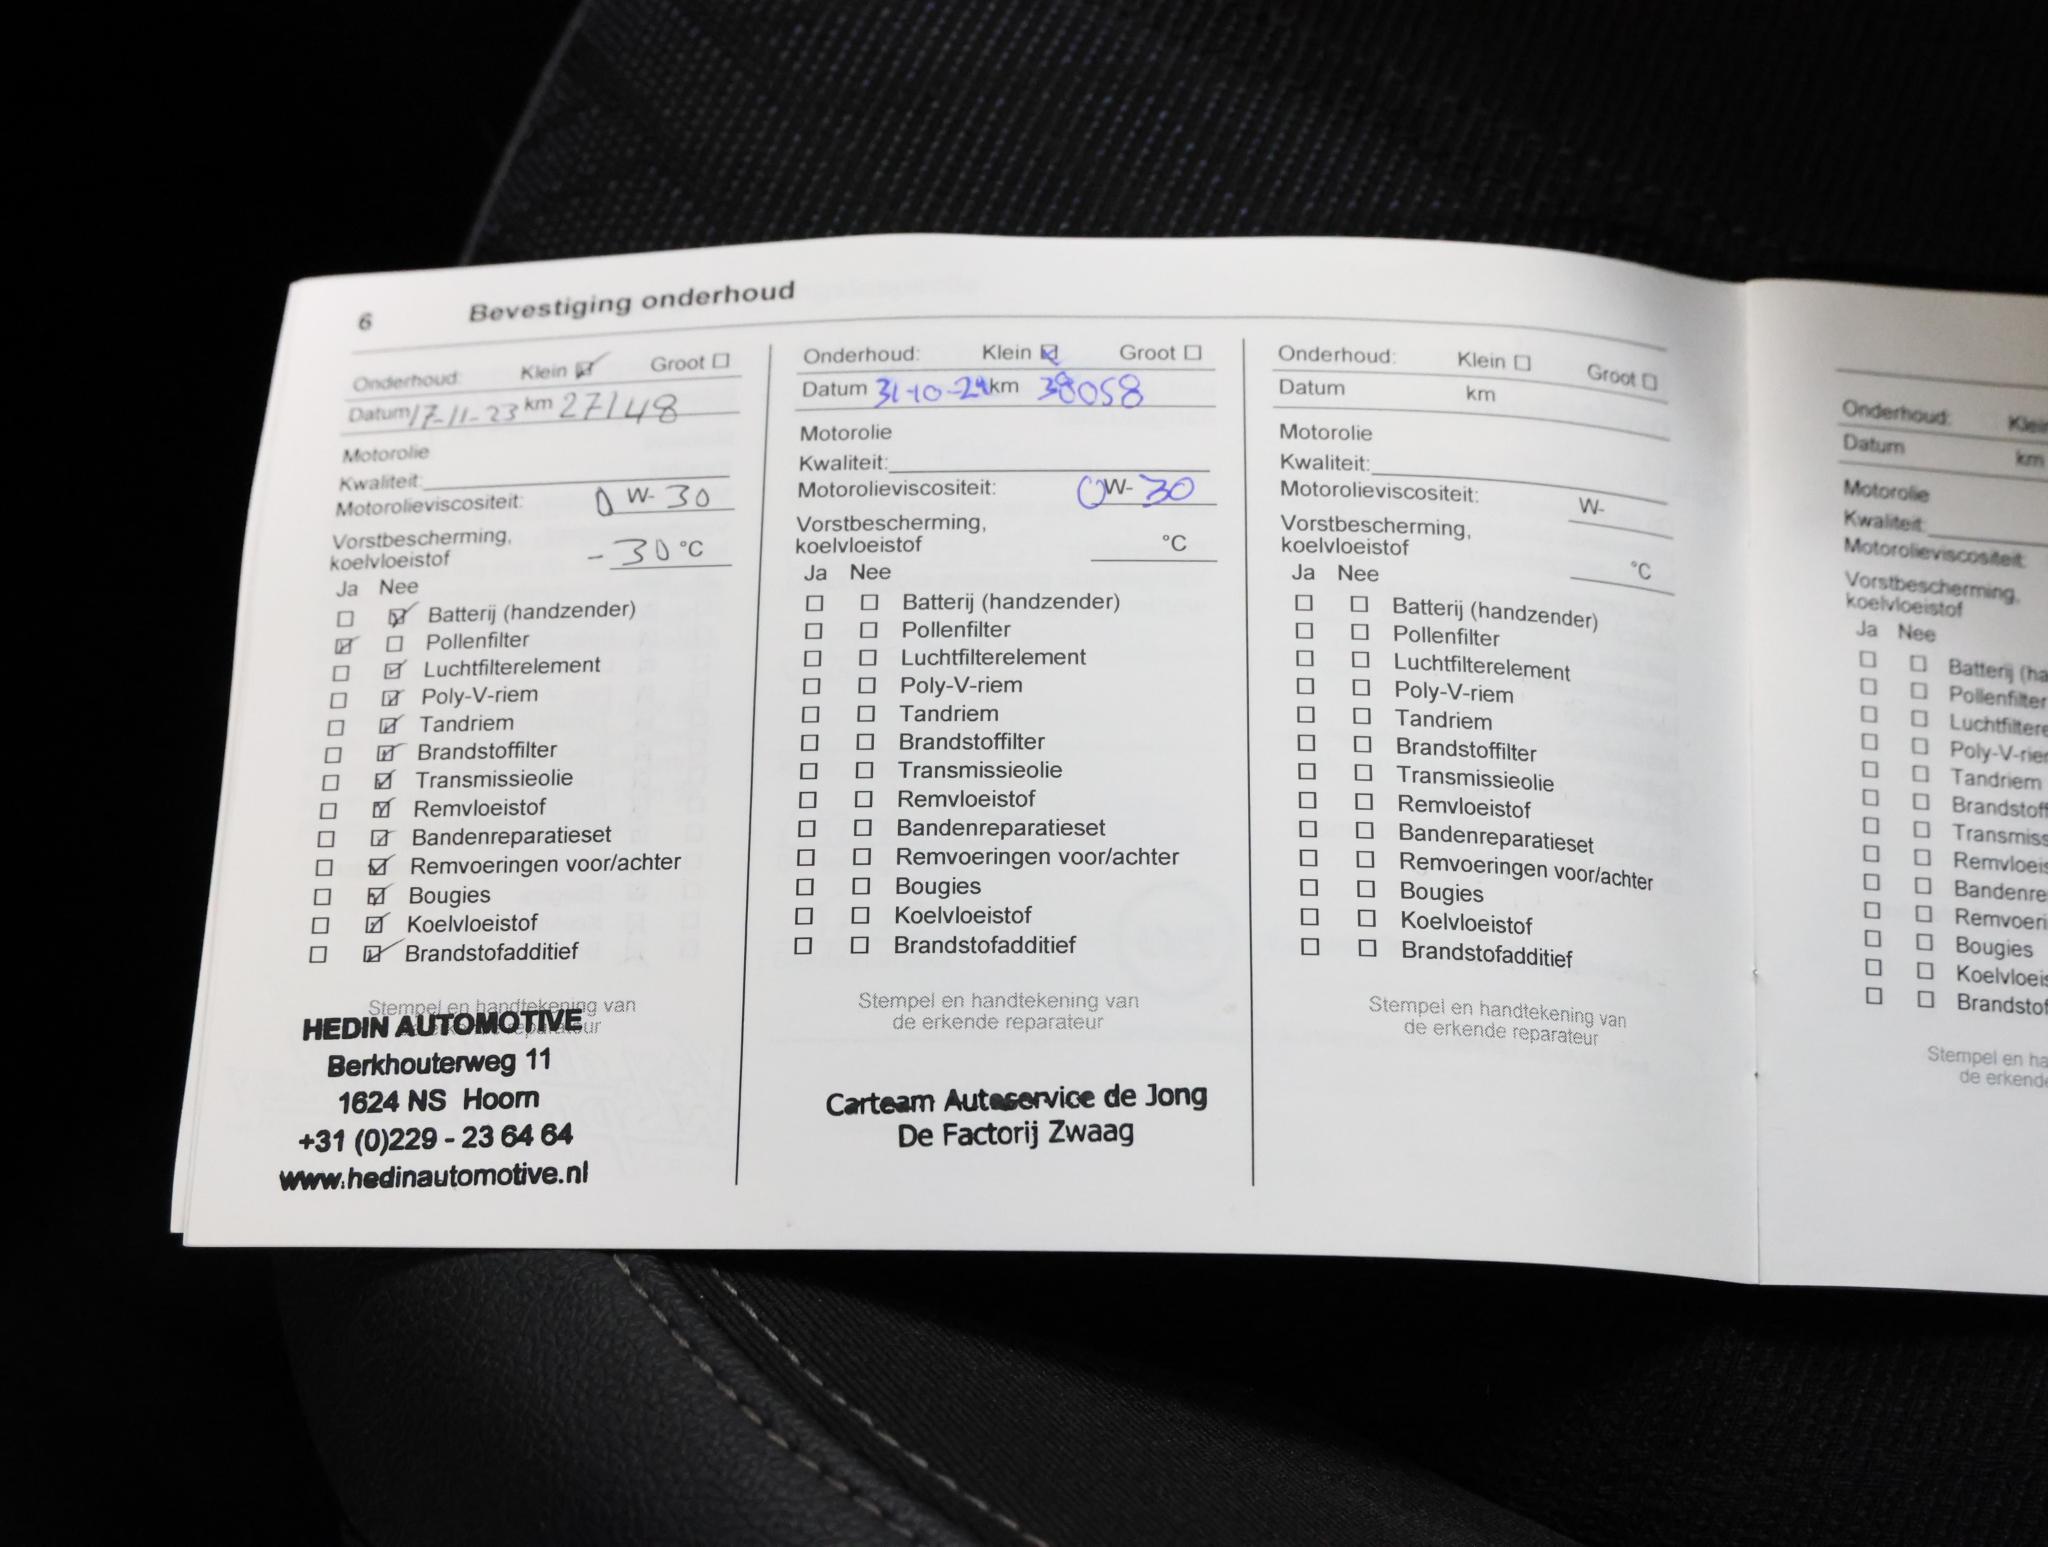 6 Bevestiging onderhoud
Onderhoud: Klein ☑ Groot ☐
Datum 17-11-23 km 27148
Motorolie
Kwaliteit:
Motorolieviscositeit: 0 W- 30
Vorstbescherming,
koelvloeistof -30 °C
Ja Nee
☐ ☑ Batterij (handzender)
☑ ☐ Pollenfilter
☐ ☑ Luchtfilterelement
☐ ☑ Poly-V-riem
☐ ☑ Tandriem
☐ ☑ Brandstoffilter
☐ ☑ Transmissieolie
☐ ☑ Remvloeistof
☐ ☑ Bandenreparatieset
☐ ☑ Remvoeringen voor/achter
☐ ☑ Bougies
☐ ☑ Koelvloeistof
☐ ☑ Brandstofadditief
Stempel en handtekening van
de erkende reparateur
HEDIN AUTOMOTIVE
Berkhouterweg 11
1624 NS Hoorn
+31 (0)229 - 23 64 64
www.hedinautomotive.nl
Onderhoud: Klein ☑ Groot ☐
Datum 31-10-24 km 38058
Motorolie
Kwaliteit:
Motorolieviscositeit: 0W- 30
Vorstbescherming,
koelvloeistof °C
Ja Nee
☐ ☐ Batterij (handzender)
☐ ☐ Pollenfilter
☐ ☐ Luchtfilterelement
☐ ☐ Poly-V-riem
☐ ☐ Tandriem
☐ ☐ Brandstoffilter
☐ ☐ Transmissieolie
☐ ☐ Remvloeistof
☐ ☐ Bandenreparatieset
☐ ☐ Remvoeringen voor/achter
☐ ☐ Bougies
☐ ☐ Koelvloeistof
☐ ☐ Brandstofadditief
Stempel en handtekening van
de erkende reparateur
Carteam Autoservice de Jong
De Factorij Zwaag
Onderhoud: Klein ☐ Groot ☐
Datum km
Motorolie
Kwaliteit:
Motorolieviscositeit: W-
Vorstbescherming,
koelvloeistof °C
Ja Nee
☐ ☐ Batterij (handzender)
☐ ☐ Pollenfilter
☐ ☐ Luchtfilterelement
☐ ☐ Poly-V-riem
☐ ☐ Tandriem
☐ ☐ Brandstoffilter
☐ ☐ Transmissieolie
☐ ☐ Remvloeistof
☐ ☐ Bandenreparatieset
☐ ☐ Remvoeringen voor/achter
☐ ☐ Bougies
☐ ☐ Koelvloeistof
☐ ☐ Brandstofadditief
Stempel en handtekening van
de erkende reparateur
Onderhoud: Klei
Datum km
Motorolie
Kwaliteit:
Motorolieviscositeit:
Vorstbescherming,
koelvloeistof
Ja Nee
☐ ☐ Batterij (ha
☐ ☐ Pollenfilter
☐ ☐ Luchtfiltere
☐ ☐ Poly-V-rie
☐ ☐ Tandriem
☐ ☐ Brandstof
☐ ☐ Transmiss
☐ ☐ Remvloeis
☐ ☐ Bandenre
☐ ☐ Remvoeri
☐ ☐ Bougies
☐ ☐ Koelvloeis
☐ ☐ Brandstof
Stempel en ha
de erkende